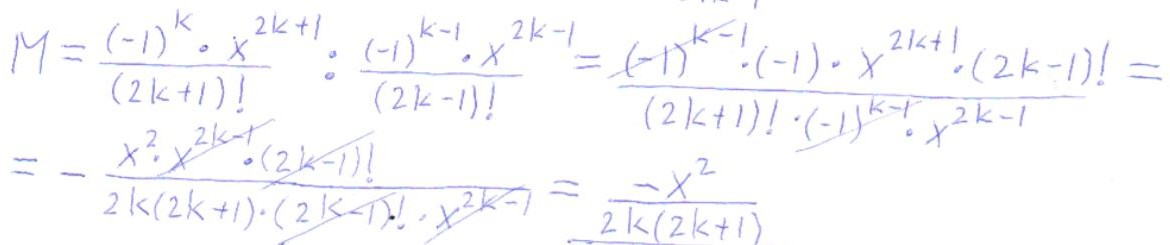 M = \frac{(-1)^k \cdot x^{2k+1}}{(2k+1)!} : \frac{(-1)^{k-1} \cdot x^{2k-1}}{(2k-1)!} = \frac{(-1)^{k-1} \cdot (-1) \cdot x^{2k+1} \cdot (2k-1)!}{(2k+1)! \cdot (-1)^{k-1} \cdot x^{2k-1}} =
= - \frac{x^2 \cdot x^{2k-1} \cdot (2k-1)!}{2k(2k+1) \cdot (2k-1)! \cdot x^{2k-1}} = \frac{-x^2}{2k(2k+1)}